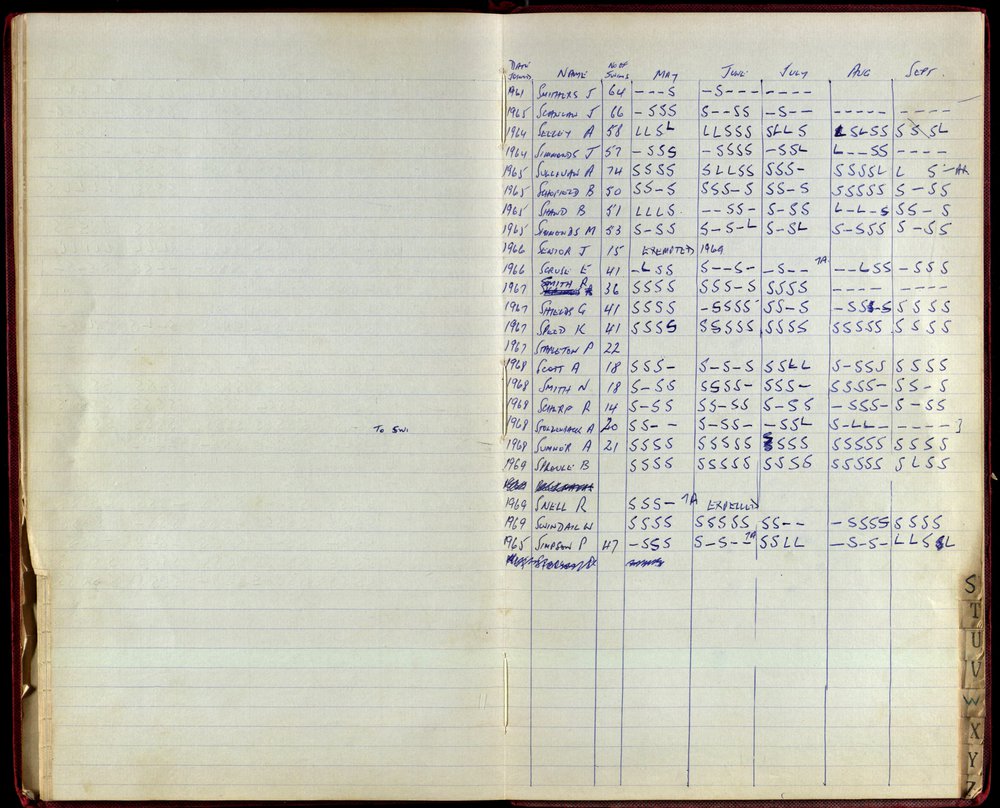 To Swi
DATE JOINED NAME No OF SWIMS MAY JUNE JULY AUG SEPT.
1961 SMITHERS J 64 - - - S - S - - - - - - - -
1965 SCANLAN J 66 - S S S S - - S S - S - - - - - - - - - - -
1964 SELLEY A 58 L L S L L L S S S S L L S L S L S S S S S L
1964 SIMMONDS J 57 - S S S - S S S S - S S L L - - S S - - - -
1965 SULLIVAN A 74 S S S S S L L S S S S S - S S S S L L S - AR
1965 SCHOFIELD B 50 S S - S S S S - S S S - S S S S S S S - S S
1965 SHAND B 51 L L L S - - S S - S - S S L - L - S S S - S
1965 SIMMONDS M 53 S - S S S - S - L S - S L S - S S S S - S S
1966 SENIOR J 15 EXEMPTED 1969
1966 SCRUSE E 41 - L S S S - - S - - S - - 7A - - L S S - S S S
1967 SMITH R 36 S S S S S S S - S S S S S - - - - - - - -
1967 SHIELDS G 41 S S S S - S S S S S S - S - S S - S S S S S
1967 SPEED K 41 S S S S S S S S S S S S S S S S S S S S S S
1967 STAPLETON P 22
1968 SCOTT A 18 S S S - S - S - S S S L L S - S S S S S S S
1968 SMITH N 18 S - S S S S S S - S S S - S S S S - S S - S
1968 SCHARP R 14 S - S S S S - S S S - S S - S S S - S - S S
1968 A 20 S S - - S - S S - - S S L S - L L - - - - - ]
1968 SUMNER A 21 S S S S S S S S S S S S S S S S S S S S S S
1969 SPROULE B S S S S S S S S S S S S S S S S S S S L S S
1969 SNELL R S S S - 7A EXPELLED
1969 SWINDAIL W S S S S S S S S S S S - - - S S S S S S S S
1965 SIMPSON P 47 - S S S S - S - - 7A S S L L - S - S - L L S L
S
T
U
V
W
X
Y
Z